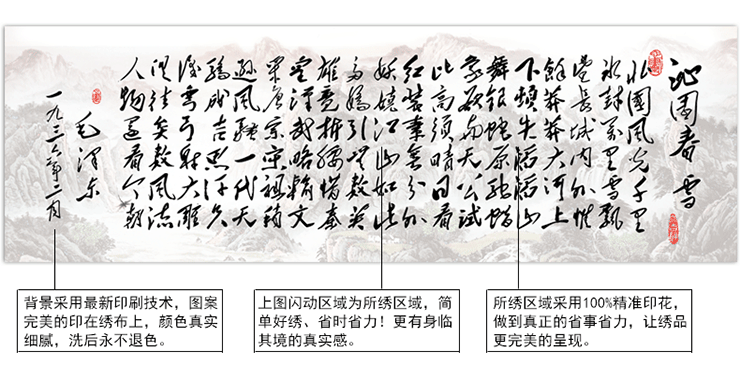 沁園春 雪
北國風光千里
冰封萬里雪飄
望長城內外惟
餘莽莽大河上
下頓失滔滔山
舞銀蛇原馳蠟
象欲與天公試
比高須晴日看
紅裝素裹分外
妖嬈江山如此
多嬌引無數英
雄競折腰惜秦
皇漢武略輸文
采唐宗宋祖稍
遜風騷一代天
驕成吉思汗只
識彎弓射大雕
俱往矣數風流
人物還看今朝
毛澤東
一九三六年二月
背景采用最新印刷技术，图案
完美的印在绣布上，颜色真实
细腻，洗后永不退色。
上图闪动区域为所绣区域，简
单好绣、省时省力！更有身临
其境的真实感。
所绣区域采用100%精准印花，
做到真正的省事省力，让绣品
更完美的呈现。